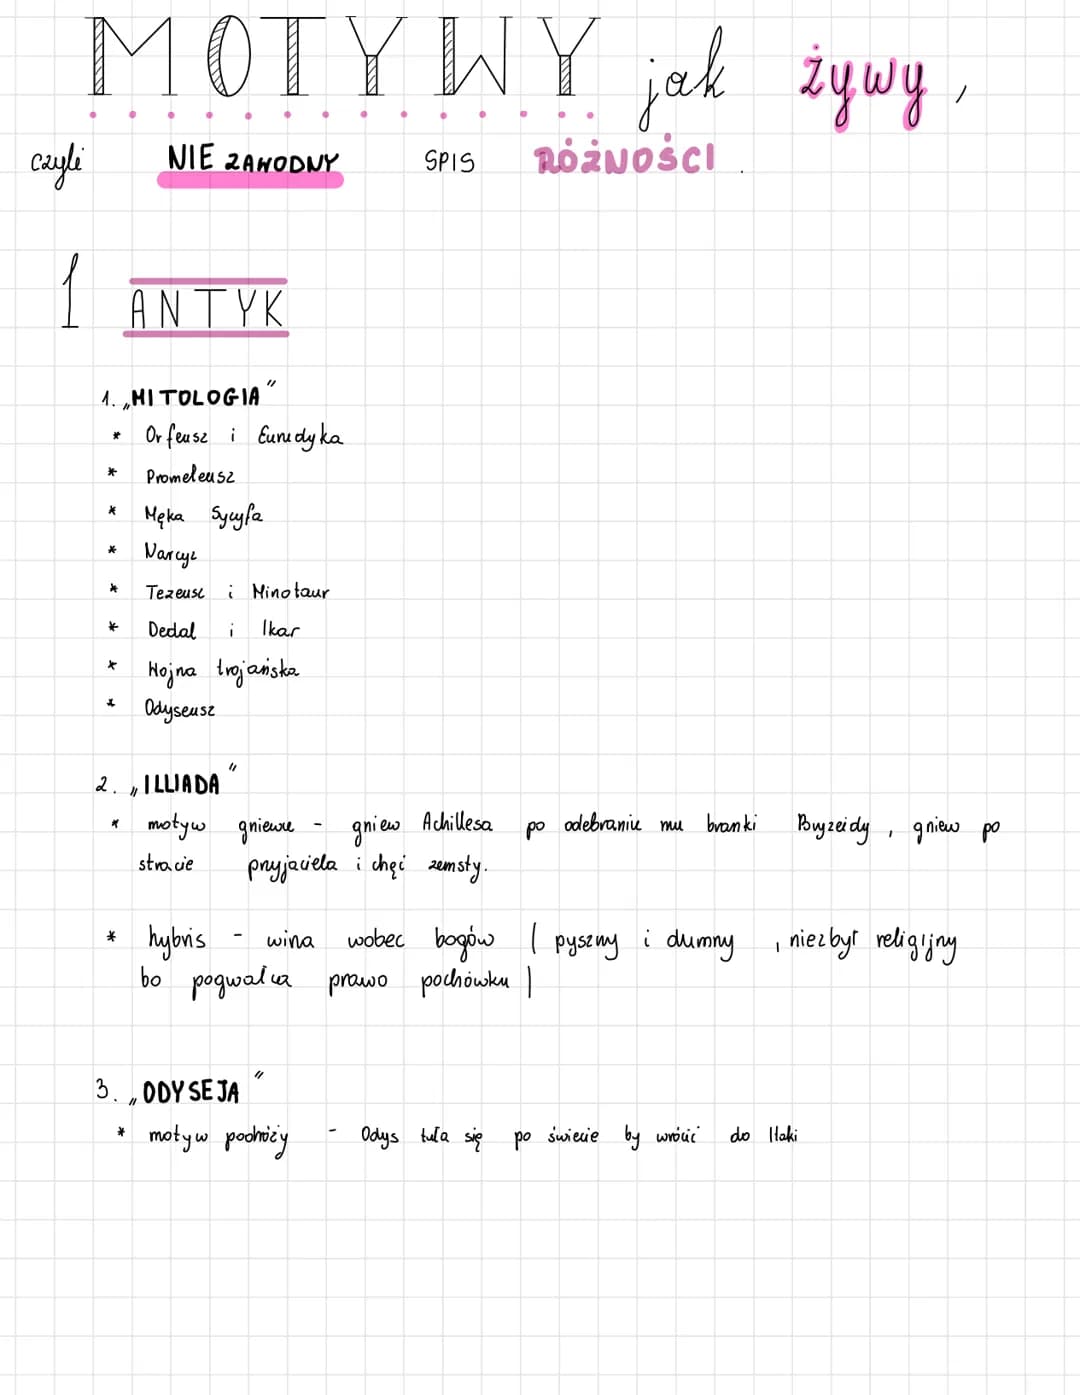 MOTYWY jak żywy,
czyli NIE ZAWODNY SPIS RÓŻNOŚCI.
1 ANTYK
1. „MITOLOGIA"
* Orfeusz i Eurydyka
* Prometeusz
* Męka Syzyfa
* Narcyz
* Tezeusz i Minotaur
* Dedal i Ikar
* Wojna trojańska
* Odyseusz
2. „ILLIADA"
* motyw gniewu - gniew Achillesa po odebraniu mu branki Bryzeidy, gniew po
stracie przyjaciela i chęć zemsty.
* hybris - wina wobec bogów ( pyszny i dumny , niezbyt religijny
bo pogwałca prawo pochówku )
3. „ODYSEJA"
* motyw podróży - Odys tuła się po świecie by wrócić do Itaki